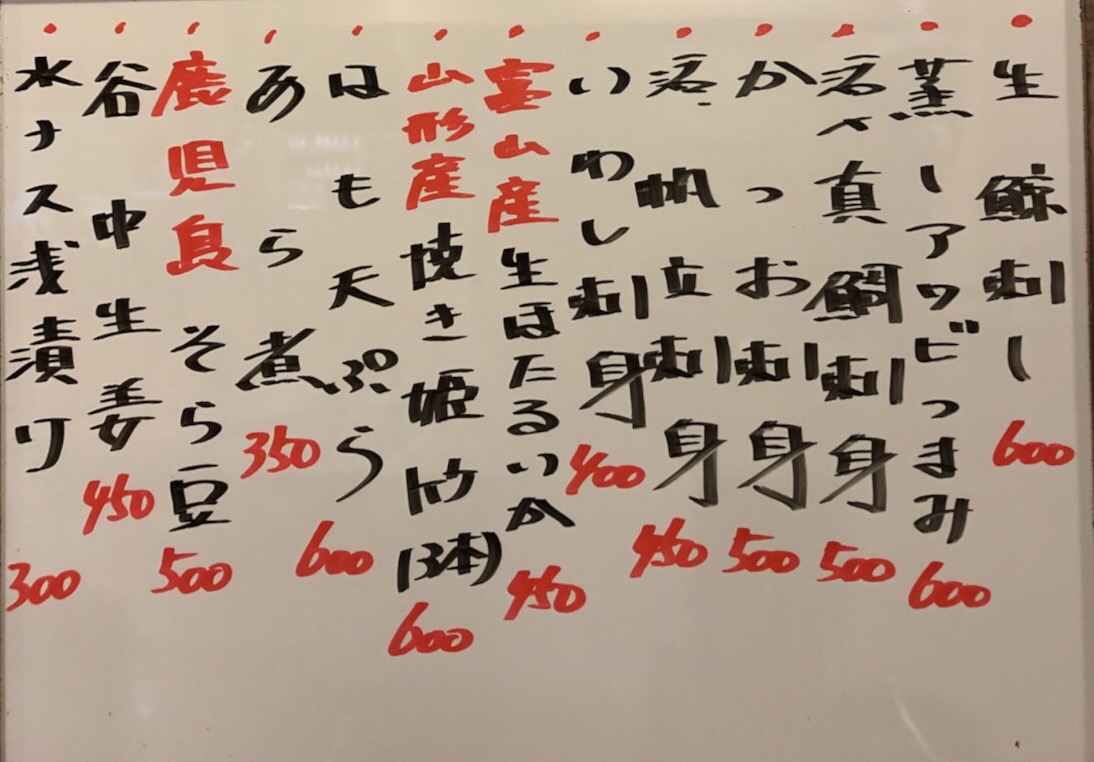 生鯨刺し 600
蒸しアワビつまみ 600
活〆真鯛刺身 500
かつお刺身 500
活帆立刺身 450
いわし刺身 400
富山産生ほたるいか 450
山形産焼き姫竹(3本) 600
はも天ぷら 600
あら煮 350
鹿児島そら豆 500
谷中生姜 450
水ナス浅漬り 300